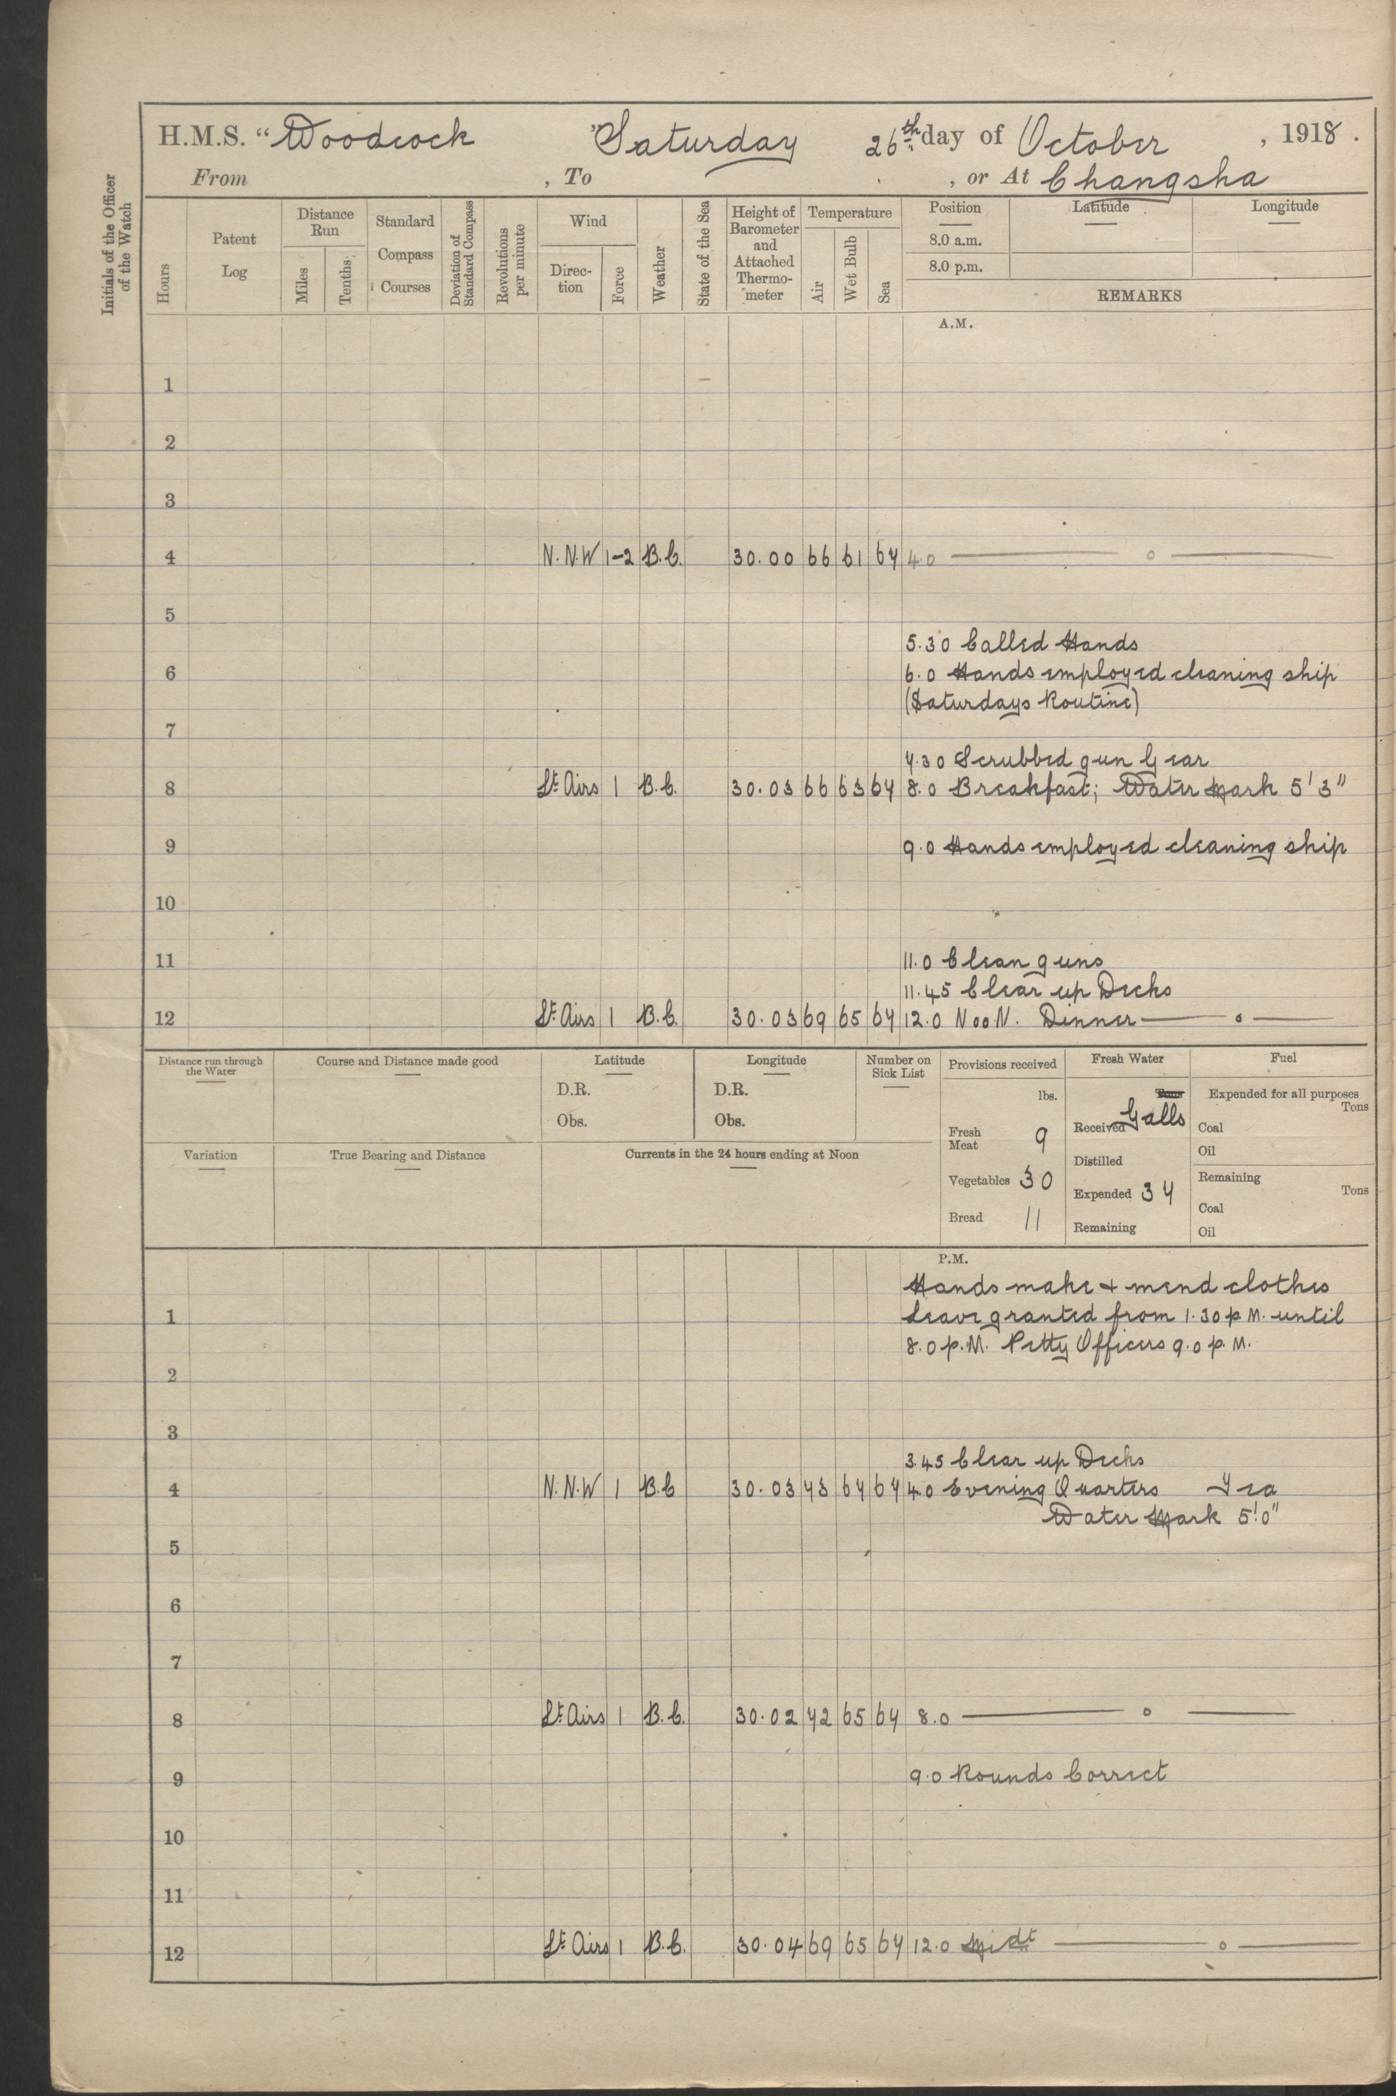 H.M.S. "Woodcock" Saturday 26th day of October, 1918.
From , To , or At Changsha
Initials of the Officer of the Watch
Hours
Patent Log
Distance Run
Miles
Tenths
Standard Compass Courses
Deviation of Standard Compass
Revolutions per minute
Wind
Direction
Force
Weather
State of the Sea
Height of Barometer and Attached Thermometer
Temperature
Air
Wet Bulb
Sea
Position Latitude Longitude
8.0 a.m.
8.0 p.m.
REMARKS
A.M.
1
2
3
4 N.N.W 1-2 B.C. 30.00 66 61 67 4.0 —— o ——
5
5.30 Called Hands
6 6.0 Hands employed cleaning ship
(Saturdays Routine)
7
7.30 Scrubbed gun Gear
8 Lt Airs 1 B.C. 30.03 66 63 67 8.0 Breakfast; Water Mark 5' 3"
9 9.0 Hands employed cleaning ship
10
11 11.0 Clean guns
11.45 Clear up Decks
12 Lt Airs 1 B.C. 30.03 69 65 67 12.0 NooN. Dinner —— o ——
Distance run through the Water
Course and Distance made good
Latitude
D.R.
Obs.
Longitude
D.R.
Obs.
Number on Sick List
Variation
True Bearing and Distance
Currents in the 24 hours ending at Noon
Provisions received
lbs.
Fresh Meat 9
Vegetables 30
Bread 11
Fresh Water
Tons
Galls
Received
Distilled
Expended 37
Remaining
Fuel
Expended for all purposes
Tons
Coal
Oil
Remaining
Tons
Coal
Oil
P.M.
Hands make + mend clothes
1 Leave granted from 1.30 p.M. until
8.0 p.M. Petty Officers 9.0 p.M.
2
3
3.45 Clear up Decks
4 N.N.W 1 B.C 30.03 73 67 67 4.0 Evening Quarters Tea
Water Mark 5'.0"
5
6
7
8 Lt Airs 1 B.C. 30.02 72 65 67 8.0 —— o ——
9 9.0 Rounds Correct
10
11
12 Lt Airs 1 B.C. 30.04 69 65 67 12.0 Midt —— o ——